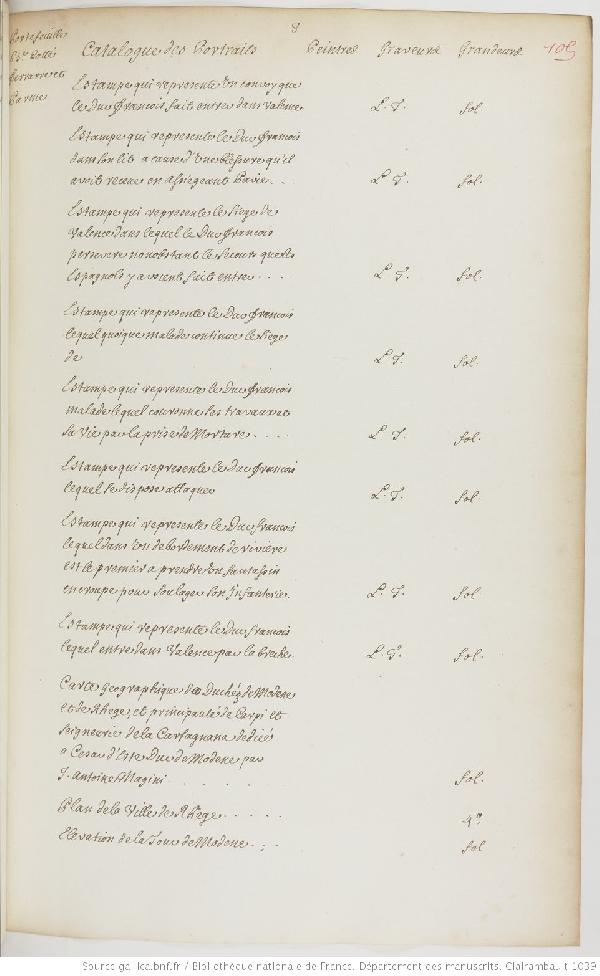 8
Portefeuille
Ferrare et
Parme
Catalogue des Portraits Peintres Graveurs Grandeurs 105
Estampe qui represente un convoy que
le Duc françois fait entrer dans Valence L. F. fol.
Estampe qui represente le Duc françois
dans son lit a cause d'une blessure qu'il
avoit recue en assiegeant Pavie . . . L. F. fol.
Estampe qui represente le siege de
Valence dans lequel le Duc françois
persevere nonobstant le secours que les
Espagnols y avoient fait entrer . . . . L. F. fol.
Estampe qui represente le Duc françois
lequel quoique malade continue le siege
de L. F. fol.
Estampe qui represente le Duc françois
malade lequel couronne les travaux de
sa vie par la prise de Mortare . . . . L. F. fol.
Estampe qui represente le Duc françois
lequel se dispose attaquer L. F. fol.
Estampe qui represente le Duc françois
lequel dans un debordement de riviere
est le premier a prendre un fantassin
en croupe pour soulager son Infanterie. L. F. fol.
Estampe qui represente le Duc françois
lequel entre dans Valence par la breche. L. F. fol.
Carte geographique des Duchéz de Modene
et de Rhege, et principauté de Carpi et
seigneurie de la Carfagnana dediée
a Cesar d'Este Duc de Modene par
J. Antoine Magini . . . . . fol.
Plan de la Ville de Rhege . . . . . 4°
Elevation de la Tour de Modene . . . fol
Source gallica.bnf.fr / Bibliothèque nationale de France. Département des manuscrits. Clairambault 1039